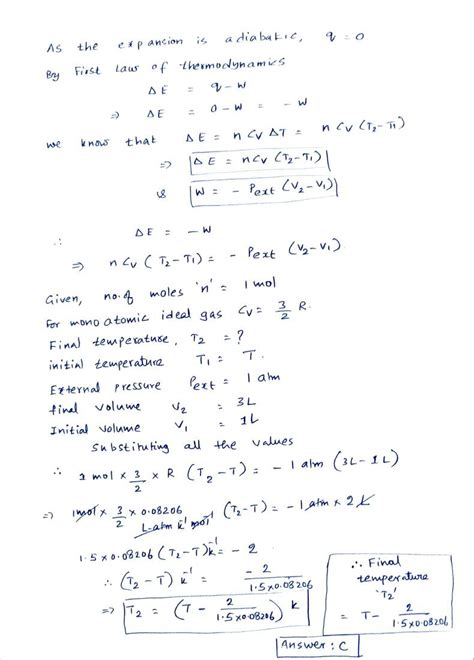 As the expansion is adiabatic, q = 0
By First law of thermodynamics
ΔE = q - W
⇒ ΔE = 0 - W = - W
we know that ΔE = n Cv ΔT = n Cv (T2 - T1)
⇒ ΔE = n Cv (T2 - T1)
& W = - Pext (V2 - V1)
∴ ΔE = - W
⇒ n Cv (T2 - T1) = - Pext (V2 - V1)
Given, no. of moles 'n' = 1 mol
For mono atomic ideal gas Cv = 3/2 R.
Final temperature, T2 = ?
initial temperature T1 = T.
External pressure Pext = 1 atm
final volume V2 = 3L
Initial volume V1 = 1L
Substituting all the values
∴ 1 mol × 3/2 × R (T2 - T) = - 1 atm (3L - 1L)
⇒ 1 mol × 3/2 × 0.08206 L-atm k⁻¹ mol⁻¹ (T2 - T) = - 1 atm × 2 L
1.5 × 0.08206 (T2 - T) k⁻¹ = - 2
∴ (T2 - T) k⁻¹ = - 2 / 1.5 × 0.08206
⇒ T2 = (T - 2 / 1.5 × 0.08206) k
∴ Final
temperature
'T2'
= T - 2 / 1.5 × 0.08206
Answer : C